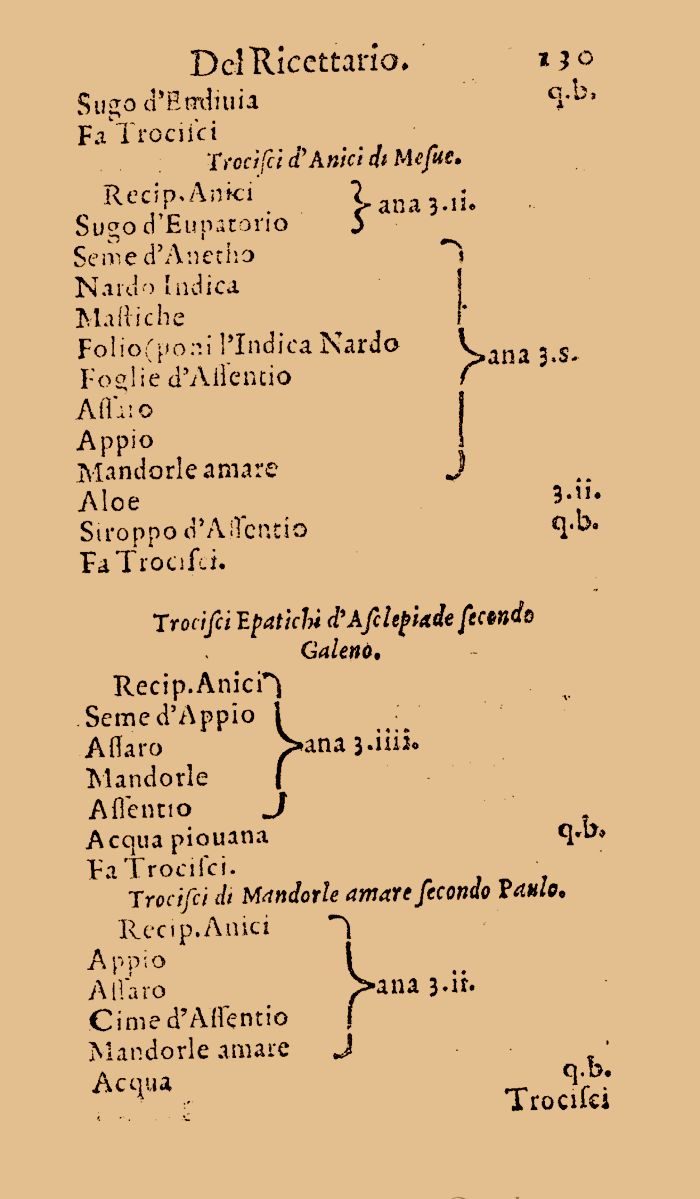 Del Ricettario. 130
Sugo d'Endiuia q.b.
Fa Trociſci
Trociſci d'Anici di Meſue.
Recip. Anici
Sugo d'Eupatorio } ana ʒ.ii.
Seme d'Anetho
Nardo Indica
Maſtiche
Folio(poni l'Indica Nardo
Foglie d'Aſſentio } ana ʒ.s.
Aſſaro
Appio
Mandorle amare
Aloe ʒ.ii.
Siroppo d'Aſſentio q.b.
Fa Trociſci.
Trociſci Epatichi d'Aſclepiade ſecondo
Galeno.
Recip. Anici
Seme d'Appio
Aſſaro } ana ʒ.iiii.
Mandorle
Aſſentio
Acqua piouana q.b.
Fa Trociſci.
Trociſci di Mandorle amare ſecondo Paulo.
Recip. Anici
Appio
Aſſaro } ana ʒ.ii.
Cime d'Aſſentio
Mandorle amare
Acqua q.b.
Trociſci